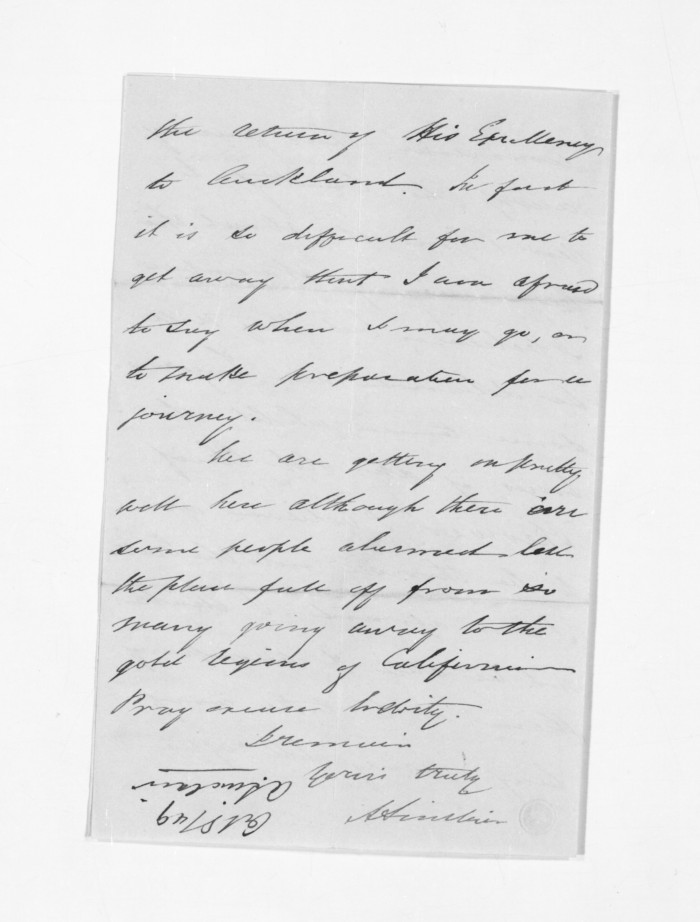 the return of His Excellency
to Auckland. In fact
it is so difficult for me to
get away that I am afraid
to say when I may go, or
to make preparation for a
journey.
We are getting on pretty
well here although there are
some people alarmed lest
the place fall off from so
many going away to the
gold regions of California
Pray excuse brevity.
I remain
Yours truly
A Sinclair
A Sinclair
/49